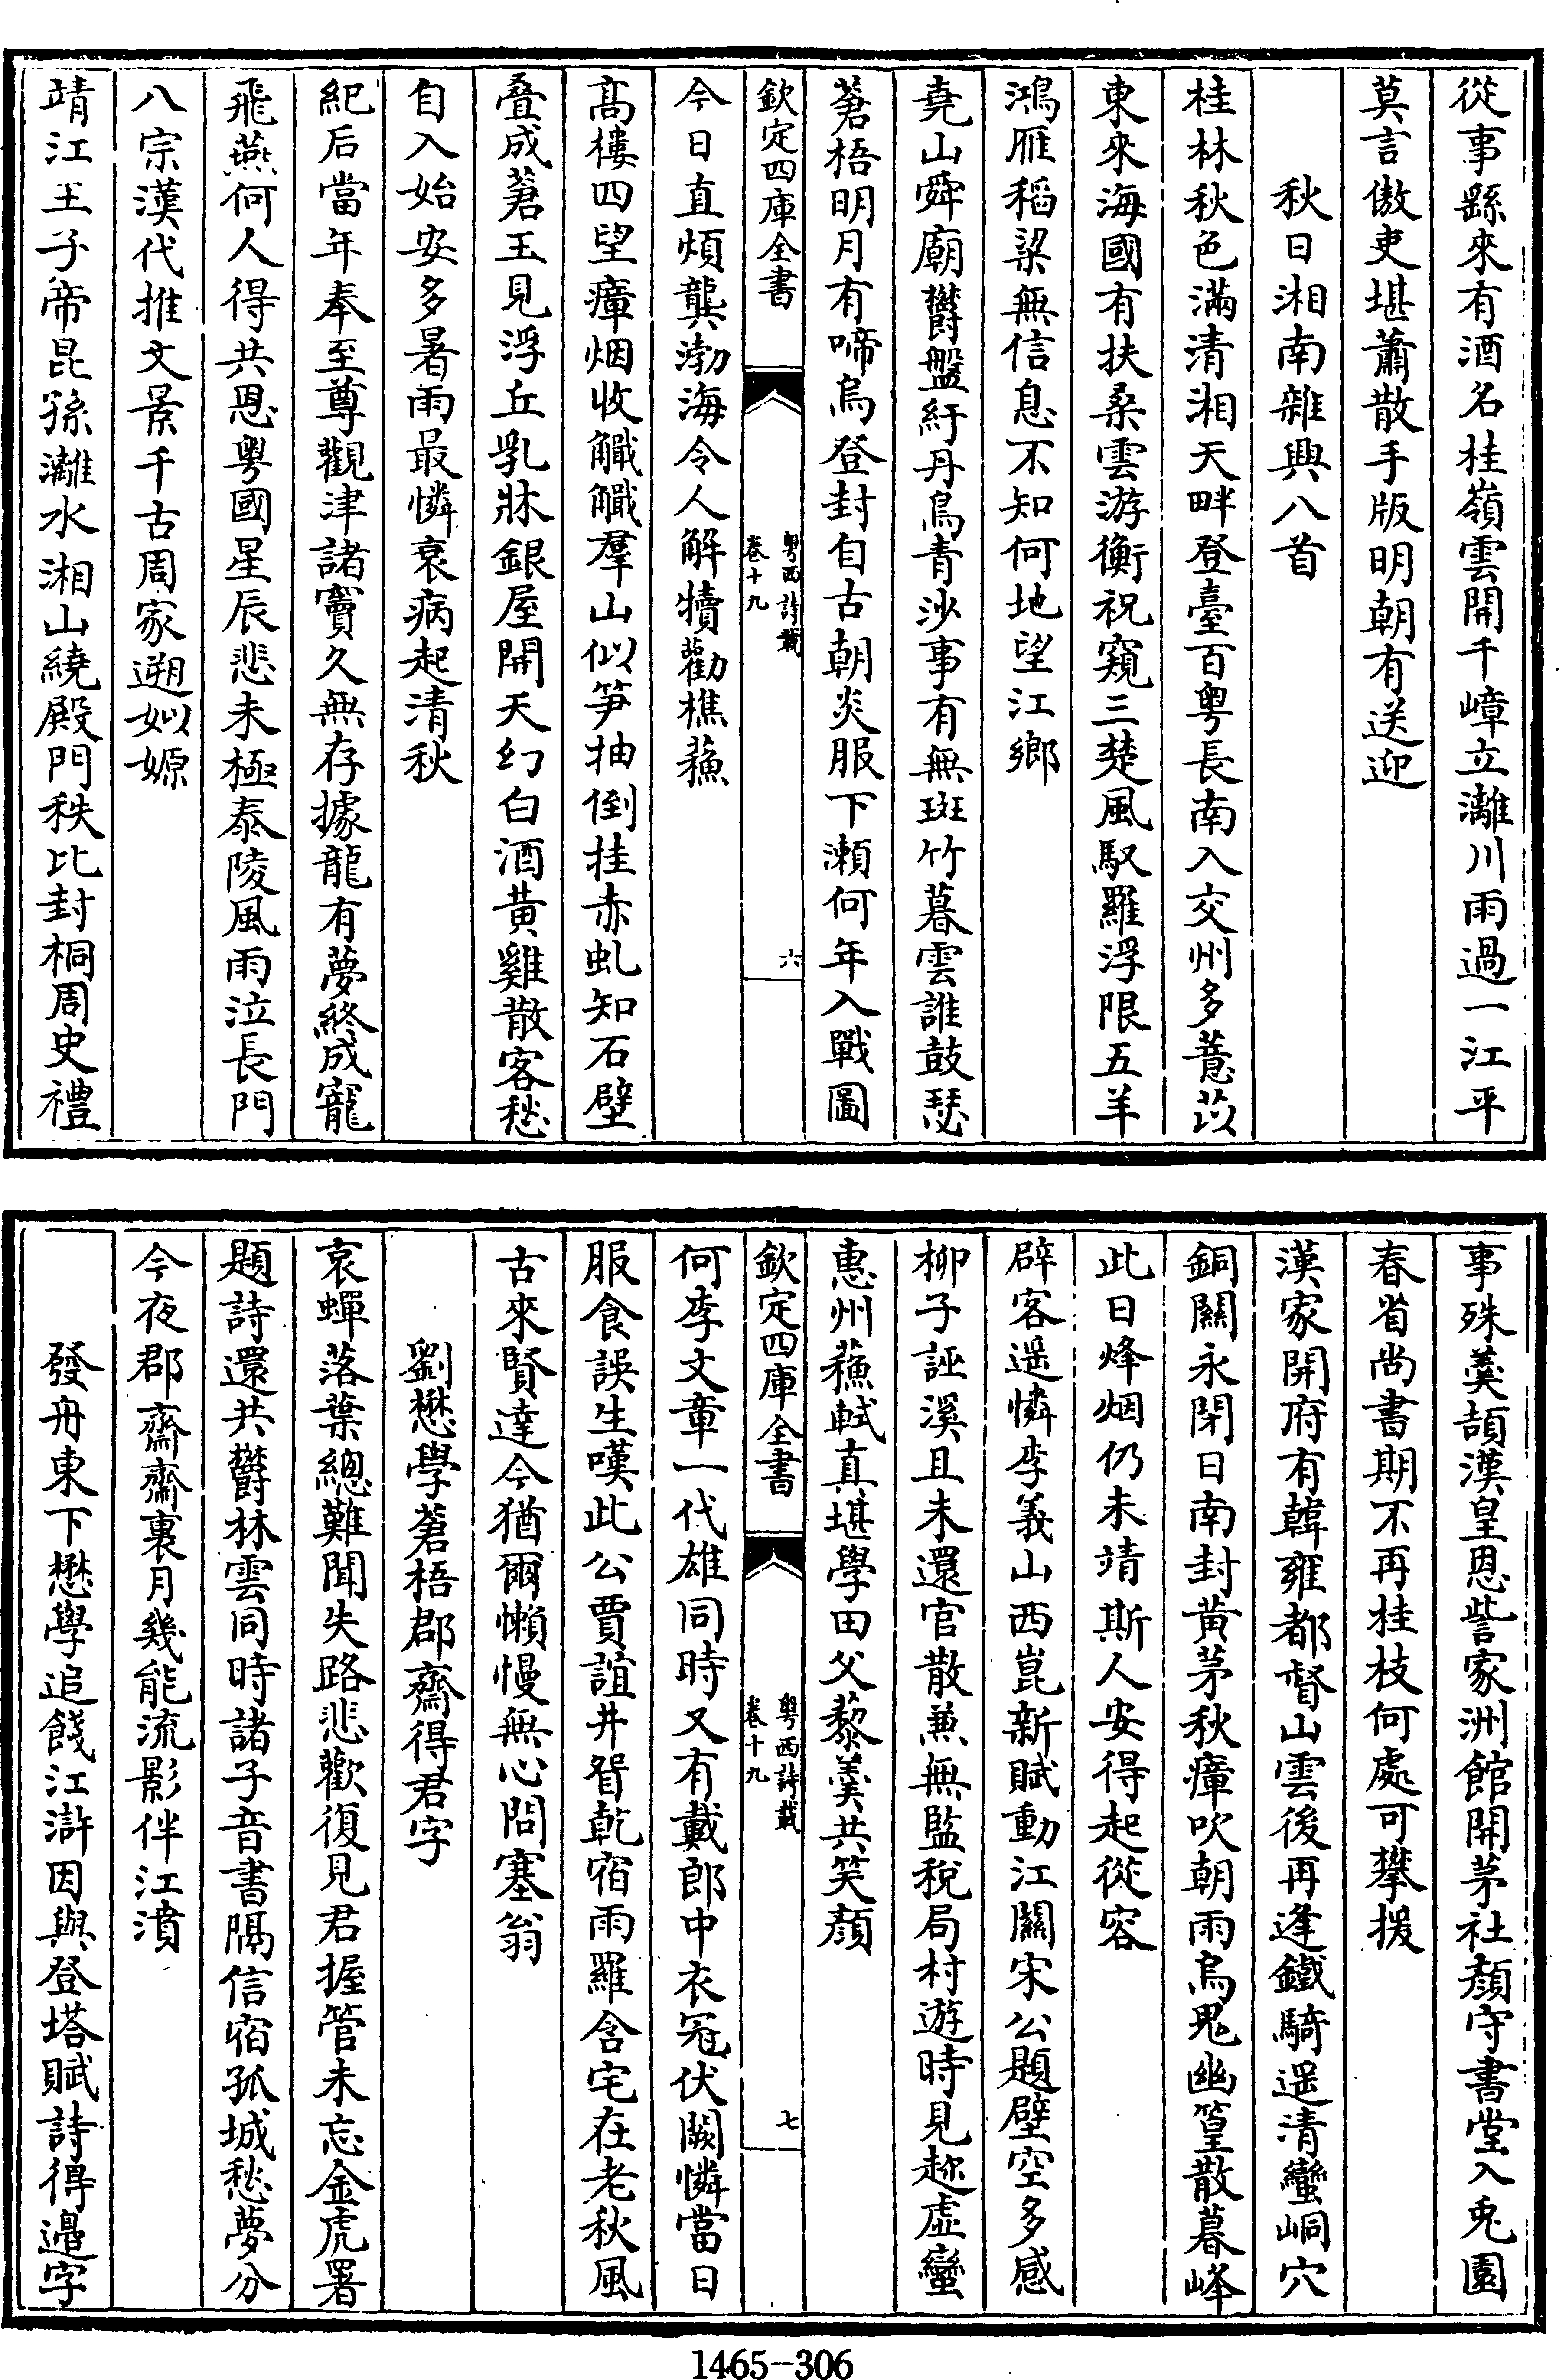 從事繇來有酒名桂嶺雲開千嶂立灕川雨過一江平
莫言傲吏堪蕭散手版明朝有送迎
秋日湘南雜興八首
桂林秋色滿清湘天畔登臺百粵長南入交州多薏苡
東來海國有扶桑雲游衡祝窺三楚風馭羅浮限五羊
鴻雁稻粱無信息不知何地望江鄉
堯山舜廟鬱盤紆丹鳥青沙事有無斑竹暮雲誰鼓瑟
蒼梧明月有啼烏登封自古朝炎服下瀨何年入戰圖
欽定四庫全書
粵西詩載
卷十九
六
今日直煩龔渤海令人解犢勸樵蘇
高樓四望瘴烟收觿觿羣山似笋抽倒挂赤虬知石壁
疊成蒼玉見浮丘乳牀銀屋開天幻白酒黃雞散客愁
自入始安多暑雨最憐衰病起清秋
紀后當年奉至尊觀津諸竇久無存據龍有夢終成寵
飛燕何人得共恩粵國星辰悲未極泰陵風雨泣長門
八宗漢代推文景千古周家遡姒嫄
靖江王子帝昆孫灕水湘山繞殿門秩比封桐周史禮
事殊羹頡漢皇恩訾家洲館開茅社顏守書堂入兎園
春省尚書期不再桂枝何處可攀援
漢家開府有韓雍都督山雲後再逢鐵騎遥清蠻峒穴
銅關永閉日南封黃茅秋瘴吹朝雨烏鬼幽篁散暮峰
此日烽烟仍未靖斯人安得起從容
辟客遥憐李義山西崑新賦動江關宋公題壁空多感
柳子誣溪且未還官散兼無監稅局村遊時見趂虛蠻
惠州蘇軾真堪學田父藜羹共笑顏
欽定四庫全書
粵西詩載
卷十九
七
何李文章一代雄同時又有戴郎中衣冠伏闕憐當日
服食誤生嘆此公賈誼井眢乾宿雨羅含宅在老秋風
古來賢達今猶爾懶慢無心問塞翁
劉懋學蒼梧郡齋得君字
哀蟬落葉總難聞失路悲歡復見君握管未忘金虎署
題詩還共鬱林雲同時諸子音書隔信宿孤城愁夢分
今夜郡齋齋裏月幾能流影伴江濆
發舟東下懋學追餞江滸因與登塔賦詩得邉字
1465-306